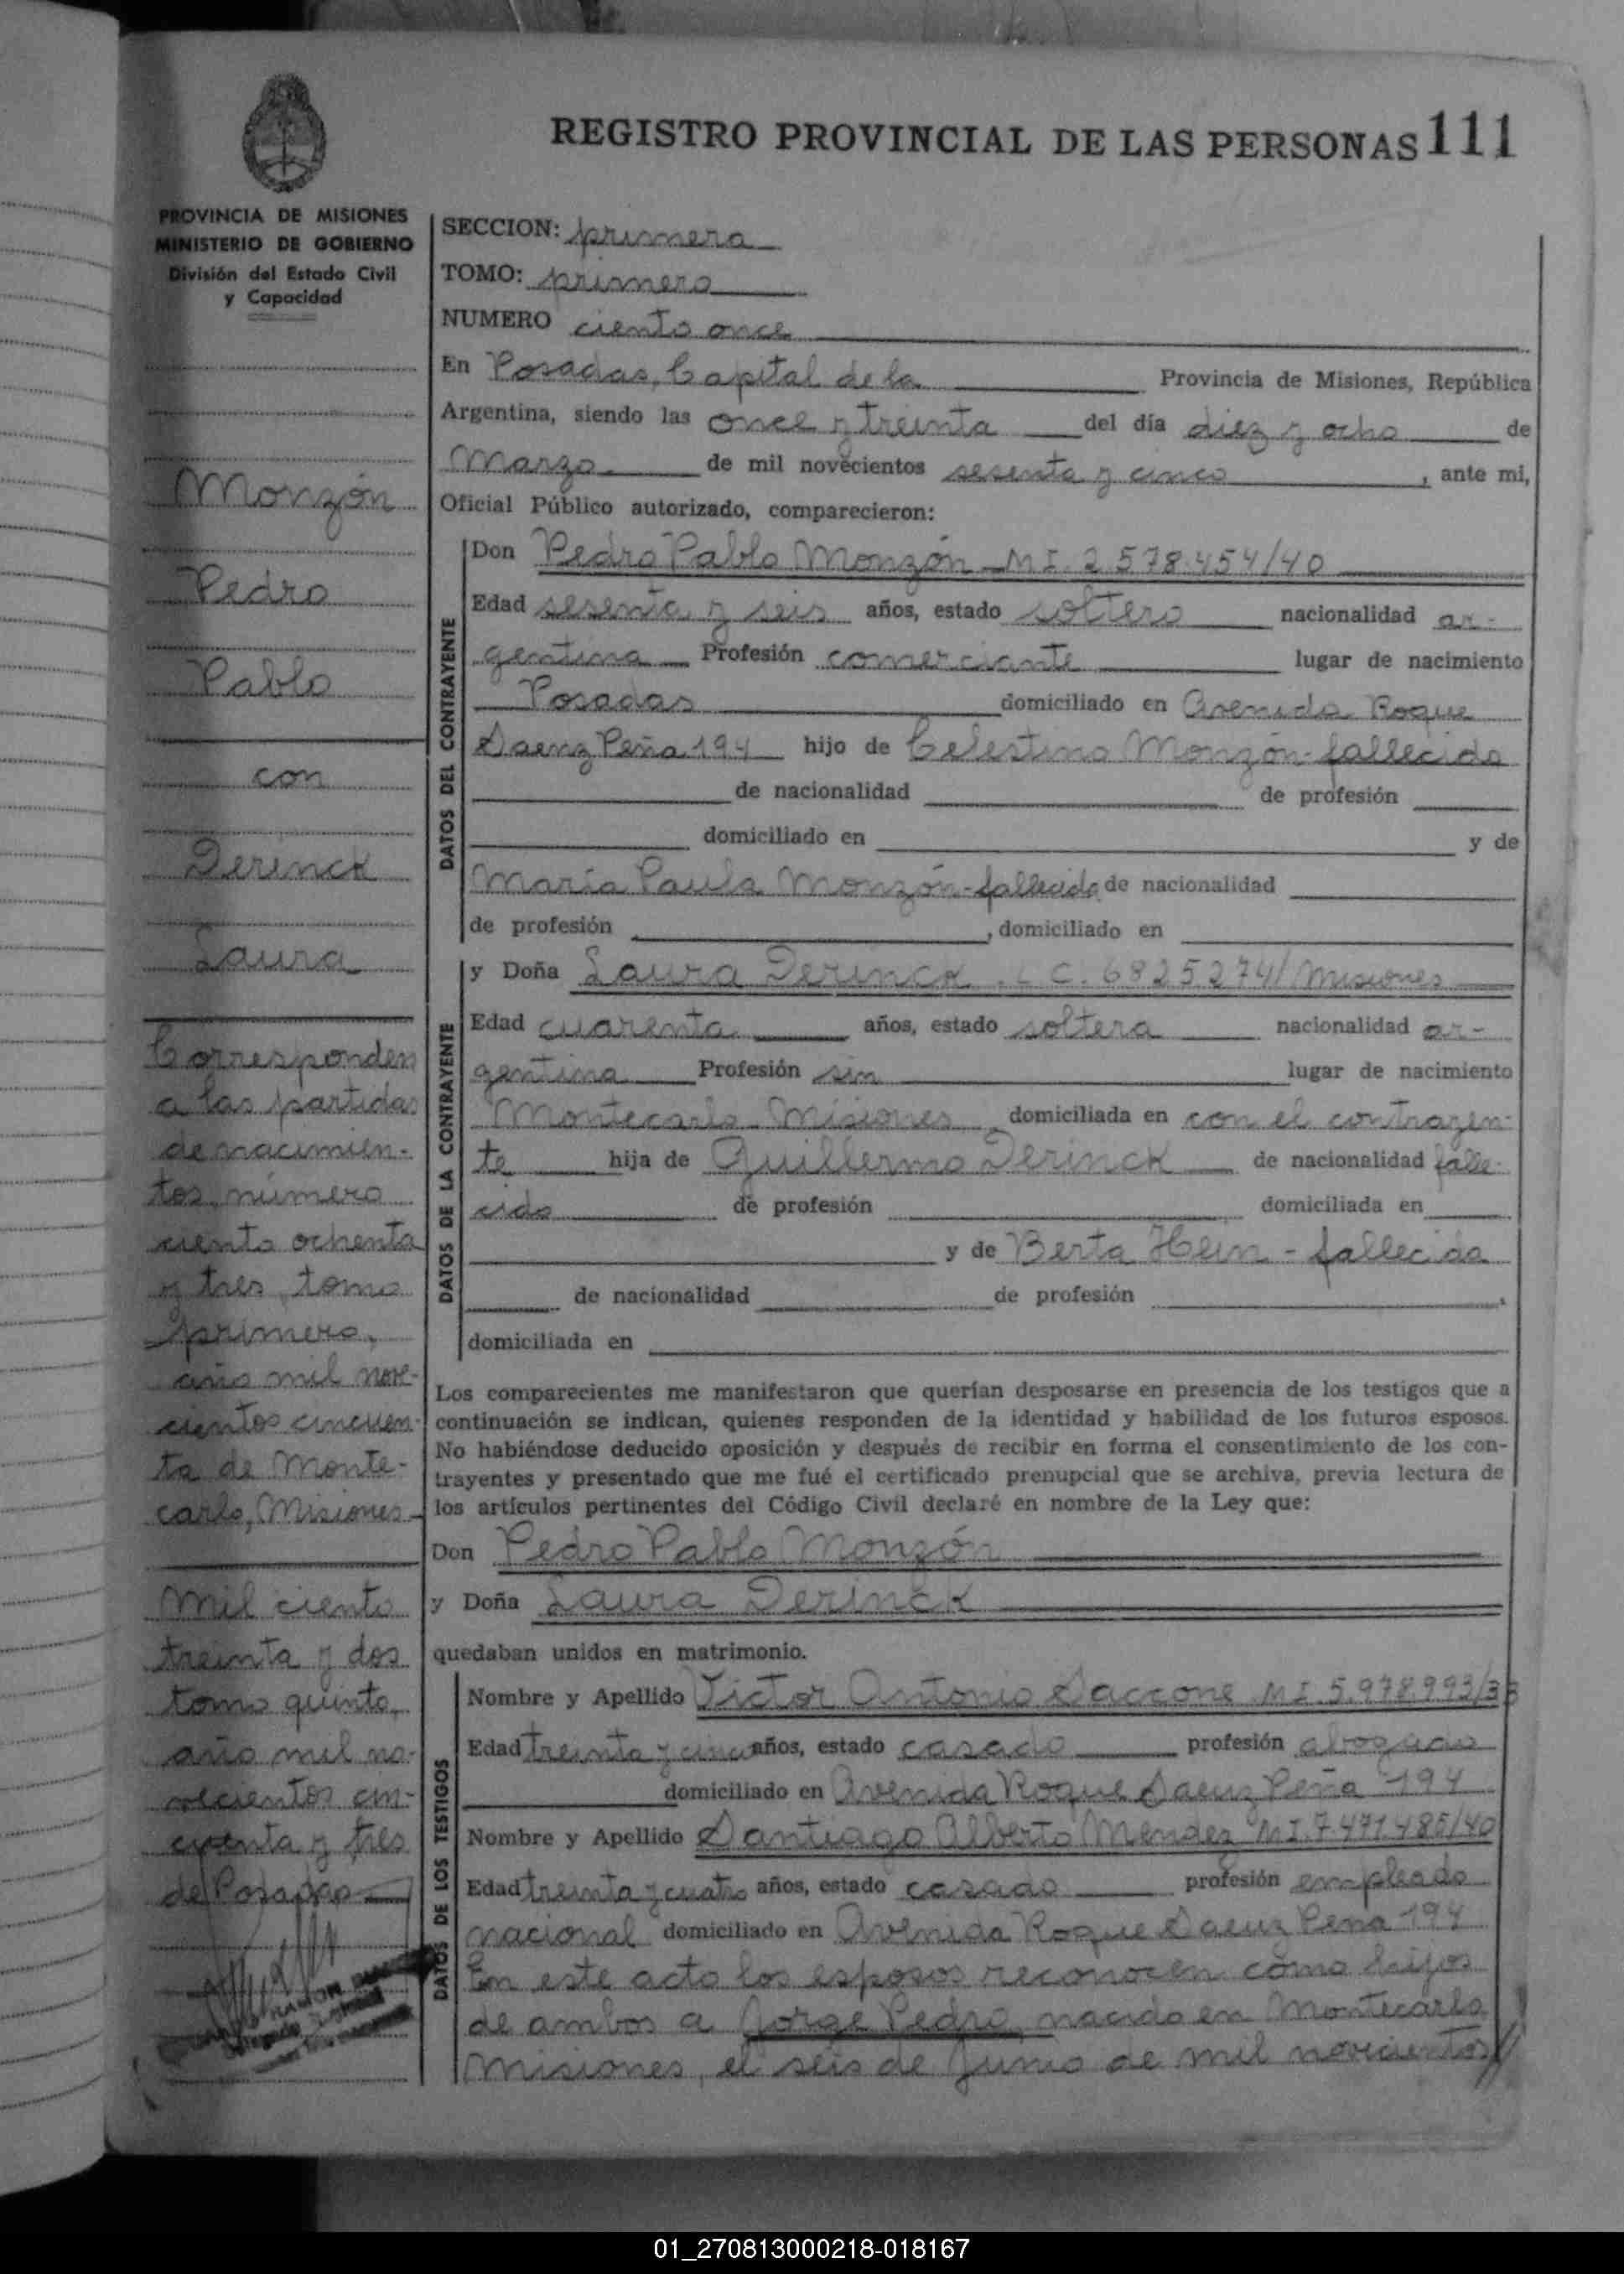 REGISTRO PROVINCIAL DE LAS PERSONAS 111
PROVINCIA DE MISIONES
MINISTERIO DE GOBIERNO
División del Estado Civil
y Capacidad
Monzón
Pedro
Pablo
con
Derinck
Laura
Corresponden
a las partidas
de nacimien-
tos número
ciento ochenta
y tres, tomo
primero,
año mil nove-
cientos cincuen-
ta de Monte-
carlo, Misiones
Mil ciento
treinta y dos
tomo quinto,
año mil no-
vecientos cin-
cuenta y tres
de Posadas
SECCION: primera
TOMO: primero
NUMERO ciento once
En Posadas, Capital de la Provincia de Misiones, República
Argentina, siendo las once y treinta del día diez y ocho de
Marzo de mil novecientos sesenta y cinco, ante mi,
Oficial Público autorizado, comparecieron:
DATOS DEL CONTRAYENTE
Don Pedro Pablo Monzón - M I. 2.578.454/40
Edad sesenta y seis años, estado soltero nacionalidad ar-
gentina Profesión comerciante lugar de nacimiento
Posadas domiciliado en Avenida Roque
Saenz Peña 194 hijo de Celestino Monzón - fallecido
de nacionalidad de profesión
domiciliado en y de
María Paula Monzón - fallecida de nacionalidad
de profesión , domiciliado en
DATOS DE LA CONTRAYENTE
y Doña Laura Derinck. L C. 6825.274/Misiones
Edad cuarenta años, estado soltera nacionalidad ar-
gentina Profesión sin lugar de nacimiento
Montecarlo - Misiones domiciliada en con el contrayen-
te hija de Guillermo Derinck de nacionalidad falle-
cido de profesión domiciliada en
y de Berta Hein - fallecida
de nacionalidad de profesión ,
domiciliada en
Los comparecientes me manifestaron que querían desposarse en presencia de los testigos que a
continuación se indican, quienes responden de la identidad y habilidad de los futuros esposos.
No habiéndose deducido oposición y después de recibir en forma el consentimiento de los con-
trayentes y presentado que me fué el certificado prenupcial que se archiva, previa lectura de
los artículos pertinentes del Código Civil declaré en nombre de la Ley que:
Don Pedro Pablo Monzón
y Doña Laura Derinck
quedaban unidos en matrimonio.
DATOS DE LOS TESTIGOS
Nombre y Apellido Victor Antonio Saccone M I. 5.978.993/33
Edad treinta y cinco años, estado casado profesión abogado
domiciliado en Avenida Roque Saenz Peña 194
Nombre y Apellido Santiago Alberto Mendez M I. 7.471.485/40
Edad treinta y cuatro años, estado casado profesión empleado
nacional domiciliado en Avenida Roque Saenz Pena 194
En este acto los esposos reconocen como hijos
de ambos a Jorge Pedro, nacido en Montecarlo
Misiones, el seis de Junio de mil novecientos//
01_270813000218-018167